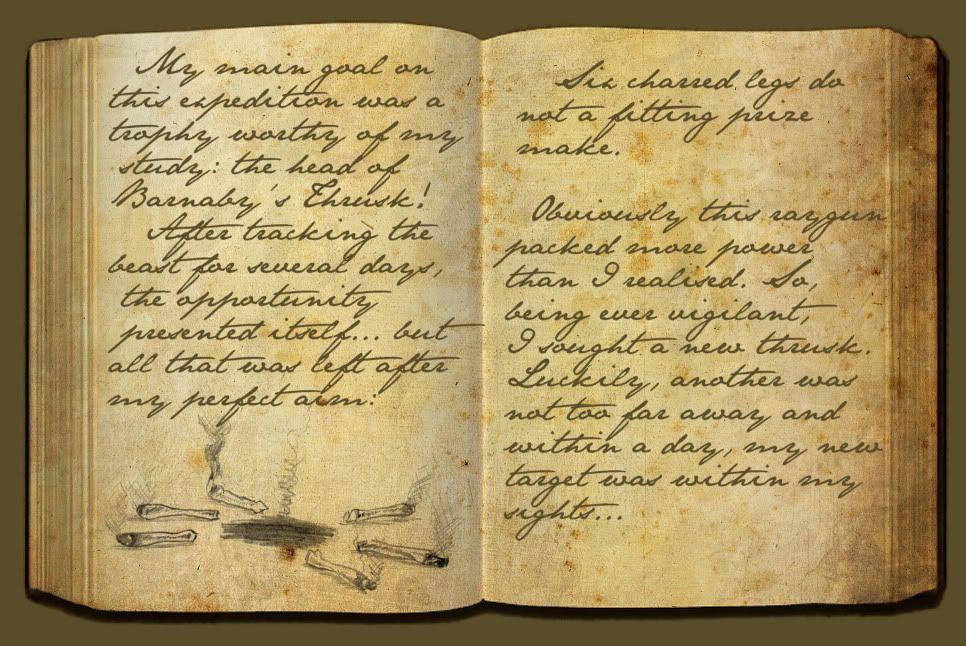 My main goal on
this expedition was a
trophy worthy of my
study: the head of
Barnaby's Thrusk!
After tracking the
beast for several days,
the opportunity
presented itself... but
all that was left after
my perfect aim:
Six charred legs do
not a fitting prize
make.
Obviously this raygun
packed more power
than I realised. So,
being ever vigilant,
I sought a new thrusk.
Luckily, another was
not too far away and
within a day, my new
target was within my
sights...